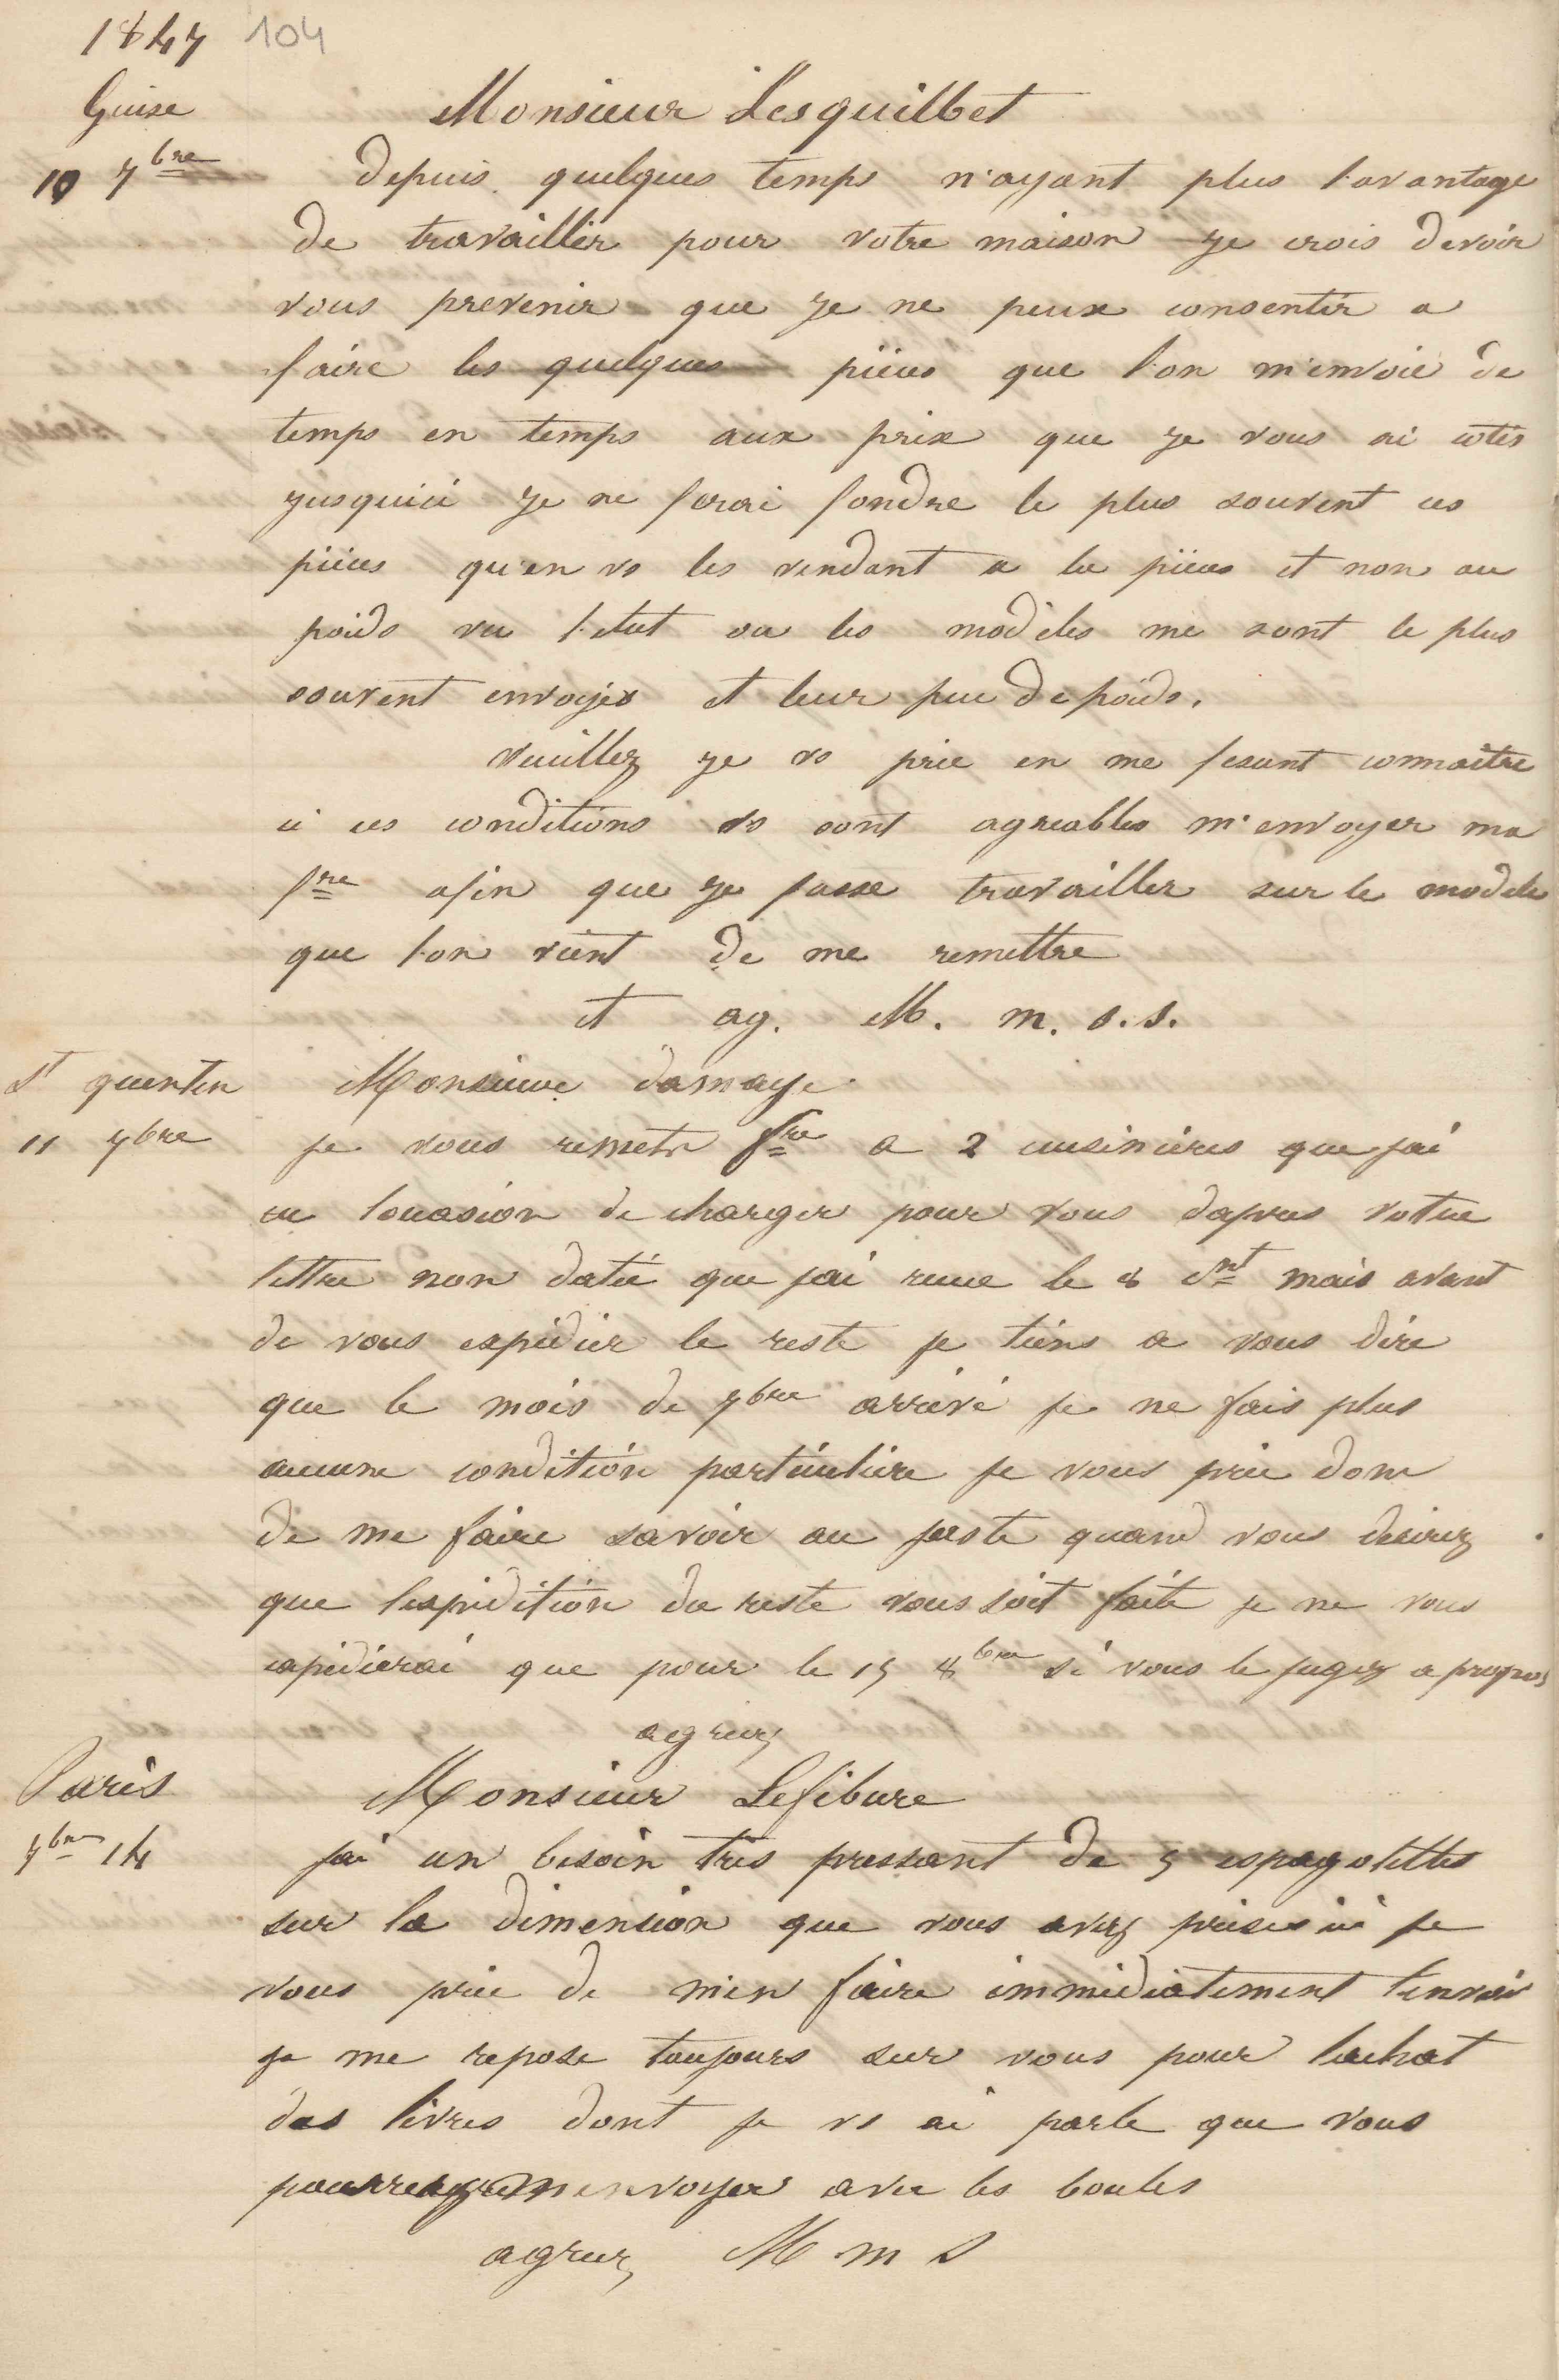 1847 104
Guise
Monsieur Lesquilbet
10 7bre
Depuis quelques temps n'ayant plus l'avantage
de travailler pour votre maison je crois devoir
vous prevenir que je ne peux consentir a
faire les quelques pièces que l'on m'envoie de
temps en temps aux prix que je vous ai cotés
jusquici je ne ferai fondre le plus souvent ces
pièces qu'en vs les vendant a la pièces et non au
poids vu l'etat ou les modèles me sont le plus
souvent envoyés et leur peu de poids.
veuillez je vs prie en me fesant connaître
si ces conditions vs sont agreables m'envoyer ma
fre afin que je fasse travailler sur le modele
que l'on vient de me remettre
et ag. M. m. s. s.
St quentin
Monsieur damaye
11 7bre
je vous remets fre a 2 cuisinières que jai
eu loccasion de charger pour vous dapres votre
lettre non datée que jai recue le 8 cnt mais avant
de vous expédier le reste je tiens a vous dire
que le mois de 7bre arrivé je ne fais plus
aucune condition particulière je vous prie donc
de me faire savoir au juste quand vous desirez
que lexpédition du reste vous soit faite je ne vous
expédierai que pour le 15 8bre si vous le jugez a propos
agreez
Paris
Monsieur Lefebure
7bre 14
jai un besoin très pressant de 5 espagolettes
sur la dimension que vous avez prises ici je
vous prie de m'en faire immédiatement lenvoi
je me repose toujours sur vous pour lachat
des livres dont je vs ai parle que vous
pourrez menvoyer avec les boules
agreez M m S